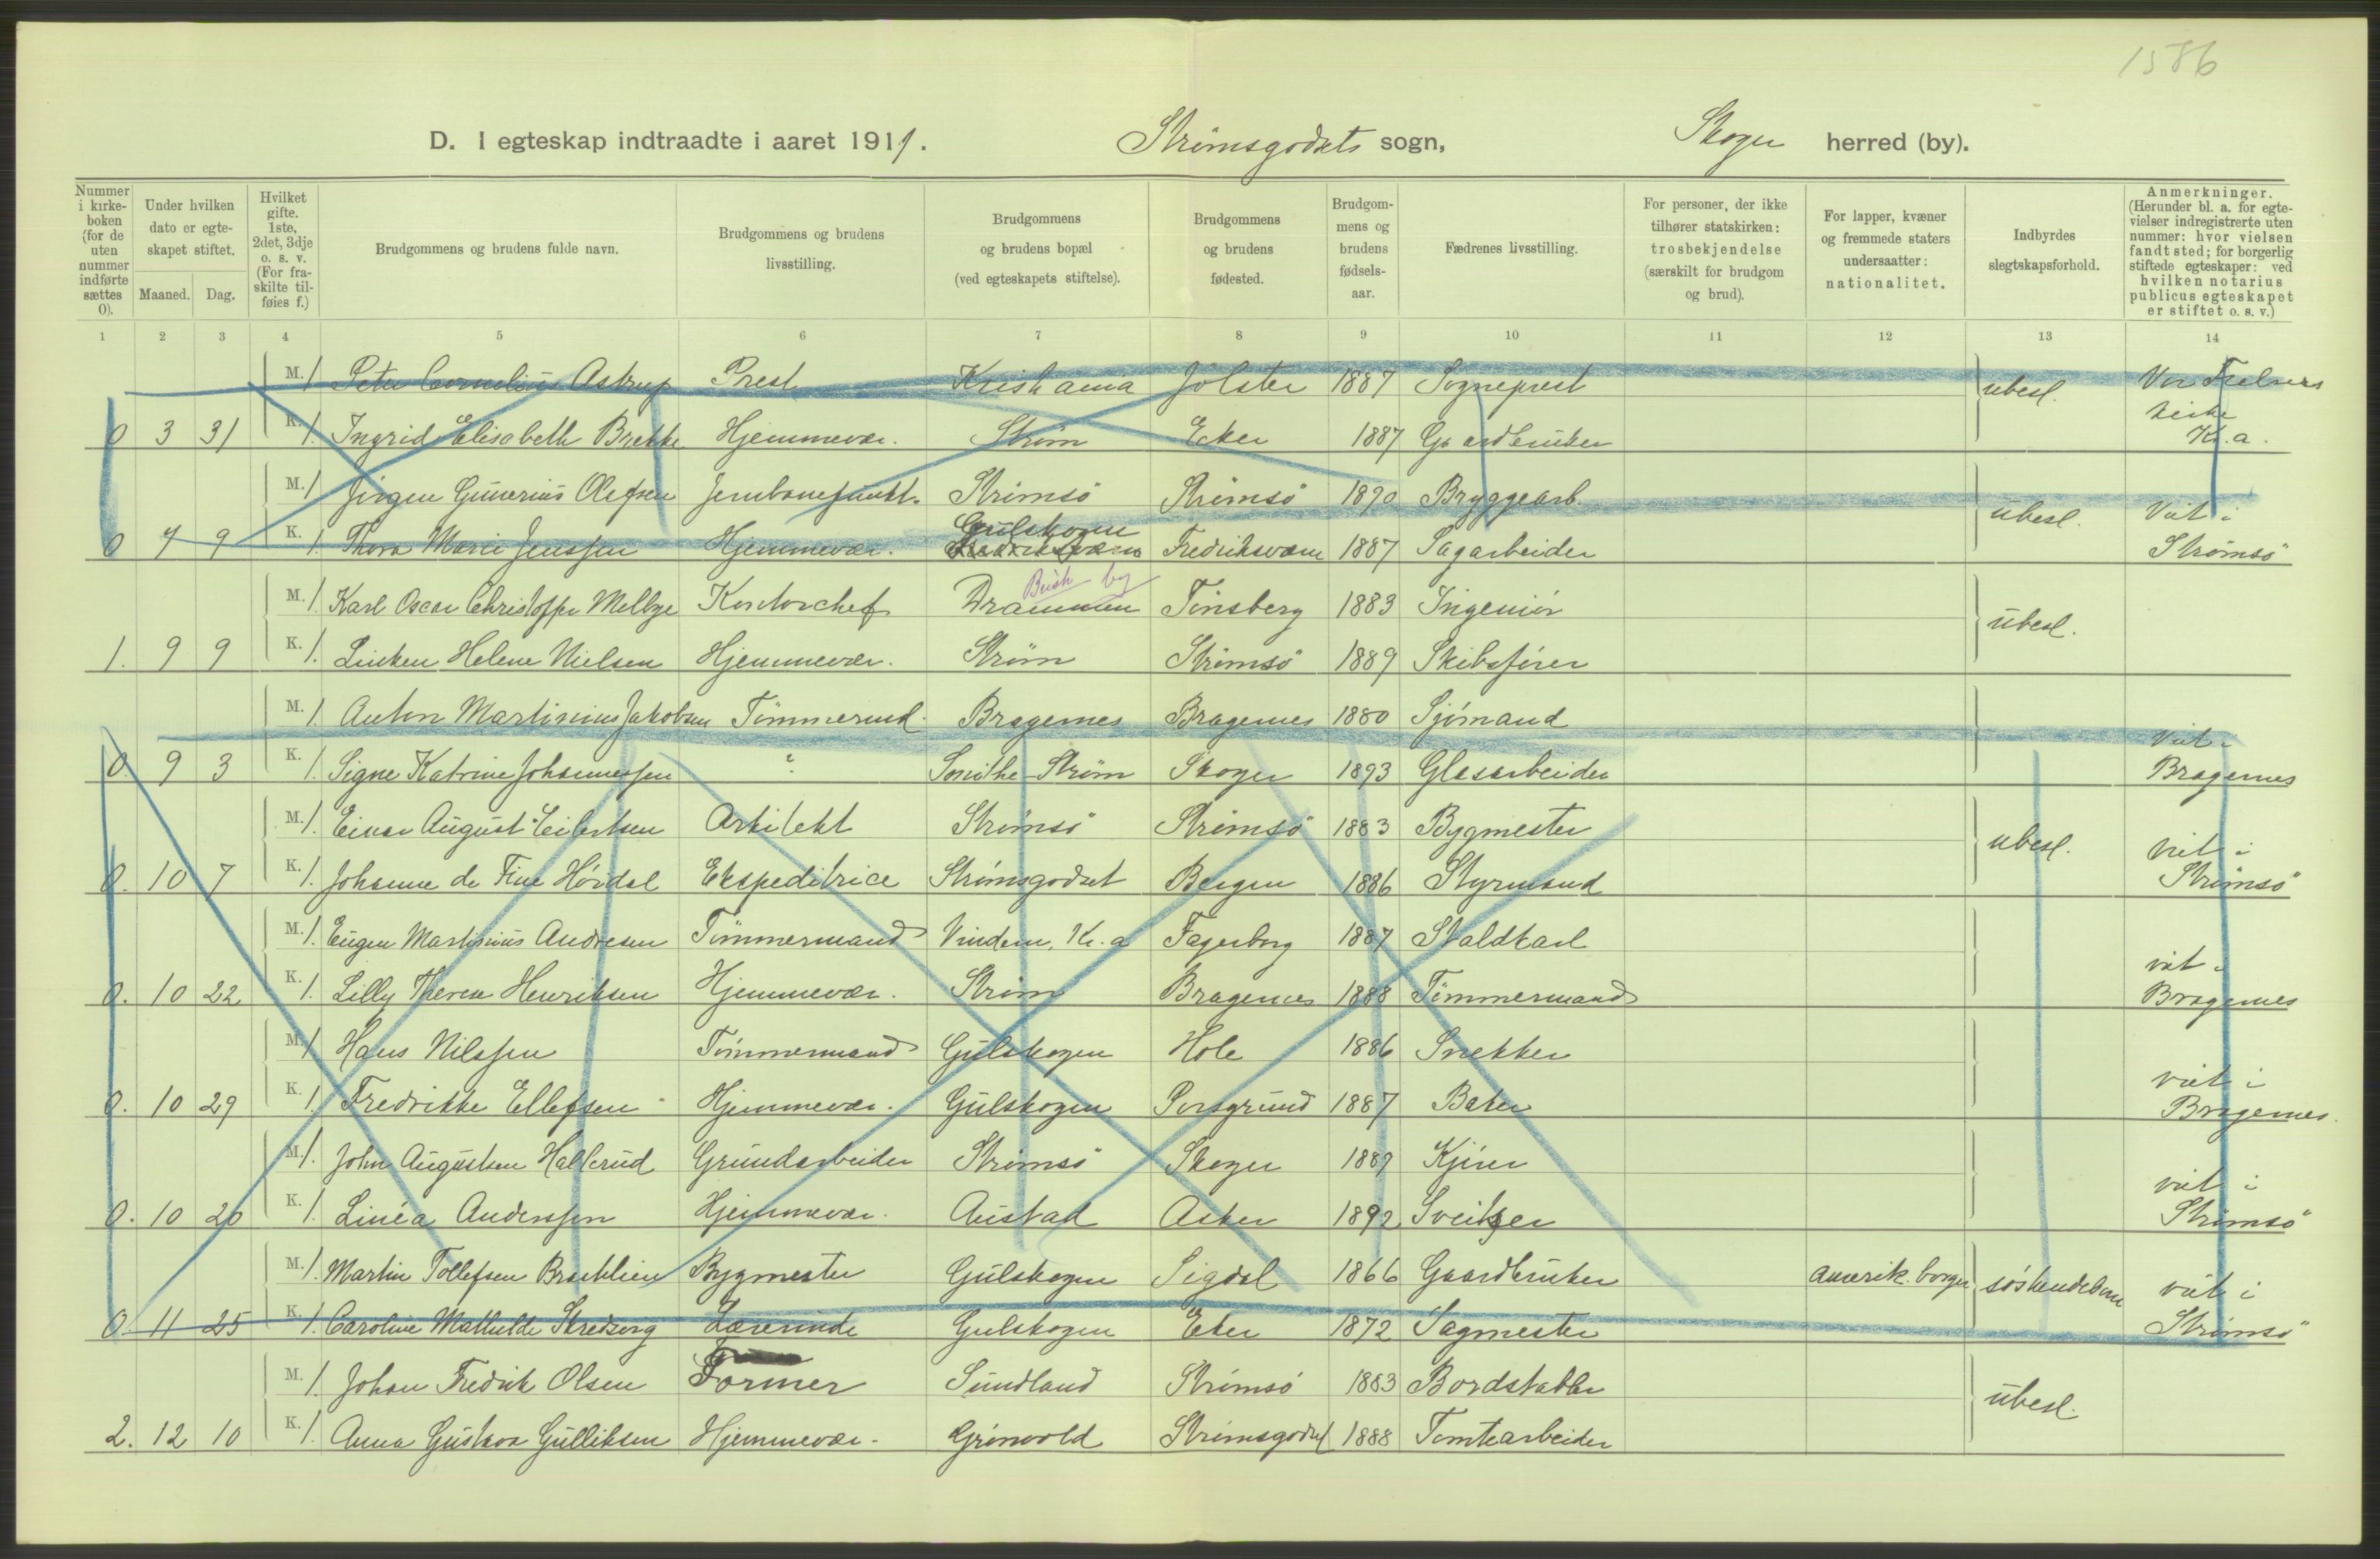 1586
D. I egteskap indtraadte i aaret 1911. Strömsgodsets sogn, Skoger herred (by).
Nummer i kirkeboken (for de uten nummer indførte sættes 0).
Under hvilken dato er egteskapet stiftet.
Maaned. Dag.
Hvilket gifte. 1ste, 2det, 3dje o. s. v. (For fraskilte tilføies f.)
Brudgommens og brudens fulde navn.
Brudgommens og brudens livsstilling.
Brudgommens og brudens bopæl (ved egteskapets stiftelse).
Brudgommens og brudens fødested.
Brudgommens og brudens fødselsaar.
Fædrenes livsstilling.
For personer, der ikke tilhører statskirken: trosbekjendelse (særskilt for brudgom og brud).
For lapper, kvæner og fremmede staters undersaatter: nationalitet.
Indbyrdes slegtskapsforhold.
Anmerkninger. (Herunder bl. a. for egtevielser indregistrerte uten nummer: hvor vielsen fandt sted; for borgerlig stiftede egteskaper: ved hvilken notarius publicus egteskapet er stiftet o. s. v.)
1 2 3 4 5 6 7 8 9 10 11 12 13 14
M. 1 Peter Cornelius Astrup Prest Kristiania Jölster 1887 Sogneprest ubesl. Vor Frelsers
kirke
0 3 31 K. 1. Ingrid Elisabeth Brekke Hjemmevær. Strøm Eker 1887 Gaardbruker Kr.a.
M. 1 Jörgen Gunerius Olefsen Jernbanefunkt. Strömsö Strömsö 1890 Bryggearb. ubesl. Viet i
Gulskogen
0 7 9 K. 1. Thora Marie Jenssen Hjemmevær. Fredriksværn 1887 Sagarbeider Strömsö
M. 1. Karl Oscar Christoffer Melbye Kontorchef Drammen by Tönsberg 1883 Ingeniör ubesl.
1. 9 9 K. 1. Linken Helene Nielsen Hjemmevær. Ström Strömsö 1889 Skibsförer
M. 1. Anton Martinius Jakobsen Tömmermd. Bragernes Bragernes 1880 Sjömand Viet i
0. 9 3 K. 1. Signe Katrine Johannessen Smithe-Ström Skoger 1893 Glasarbeider Bragernes
M. 1. Einar August Eilertsen Arkitekt Strömsö Strömsö 1883 Bygmester ubesl. viet i
0. 10 7 K. 1. Johanne de Fine Hövdal Ekspeditrice Strömsgodset Bergen 1886 Styrmand Strömsö
M. 1. Eugen Martinius Andresen Tömmermand Vindern, Kr.a Fagerborg 1887 Staldkarl viet i
0. 10 22 K. 1. Lilly Therea Henriksen Hjemmevær. Ström Bragernes 1888 Tömmermand Bragernes
M. 1 Hans Nilssen Tömmermand Gulskogen Hole 1886 Snekker viet i
0. 10 29 K. 1. Fredrikke Ellefsen Hjemmevær. Gulskogen Porsgrund 1887 Baker Bragernes.
M. 1. John Augustsen Hallerud Grundarbeider Strömsö Skoger 1889 Kjörer viet i
0. 10 20 K. 1. Linéa Anderssen Hjemmevær. Austad Asker 1892 Sveitser Strömsö
M. 1. Martin Tollefsen Brætlien Bygmester Gulskogen Sigdal 1866 Gaardbruker amerik. borger söskendebarn viet i
0. 11 25 K. 1. Caroline Mathilde Skredsvig Lærerinde Gulskogen Eker 1872 Sagmester Strömsö
M. 1. Johan Fredrik Olsen Former Sundland Strömsö 1883 Bordstabler ubesl.
2. 12 10 K. 1. Anna Gustava Gulliksen Hjemmevær. Grönvold Strömsgodset 1888 Tomtearbeider